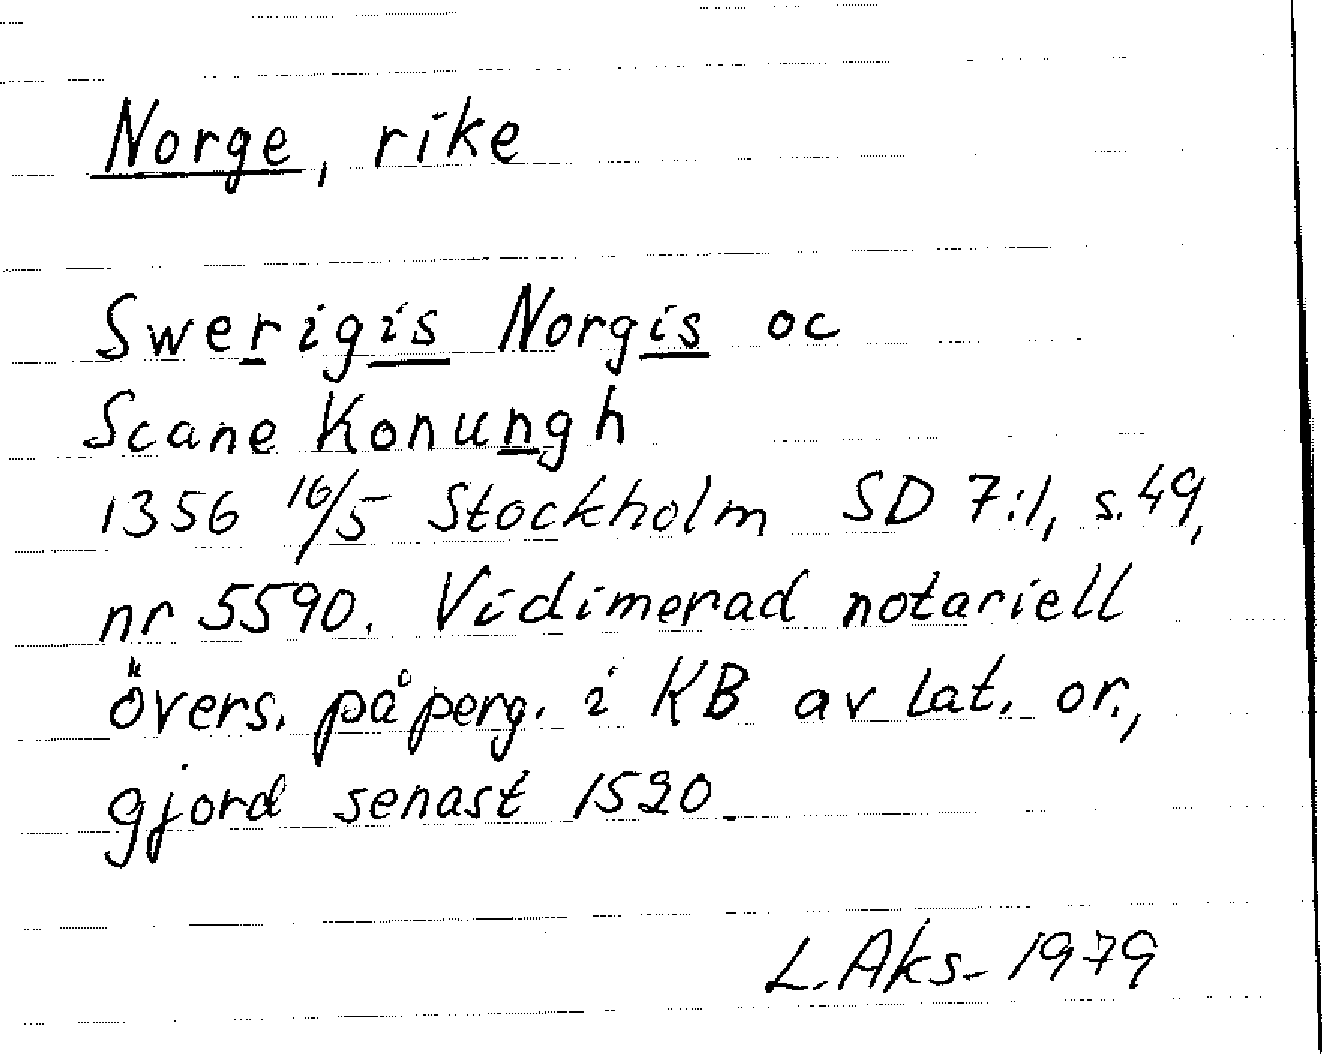 Norge, rike
Swerigis Norgis oc
Scane Konungh
1356 16/5 Stockholm SD 7:1, s. 49,
nr 5590. Vidimerad notariell
övers. på perg. i KB av lat. or.,
gjord senast 1520
L. Aks- 1979